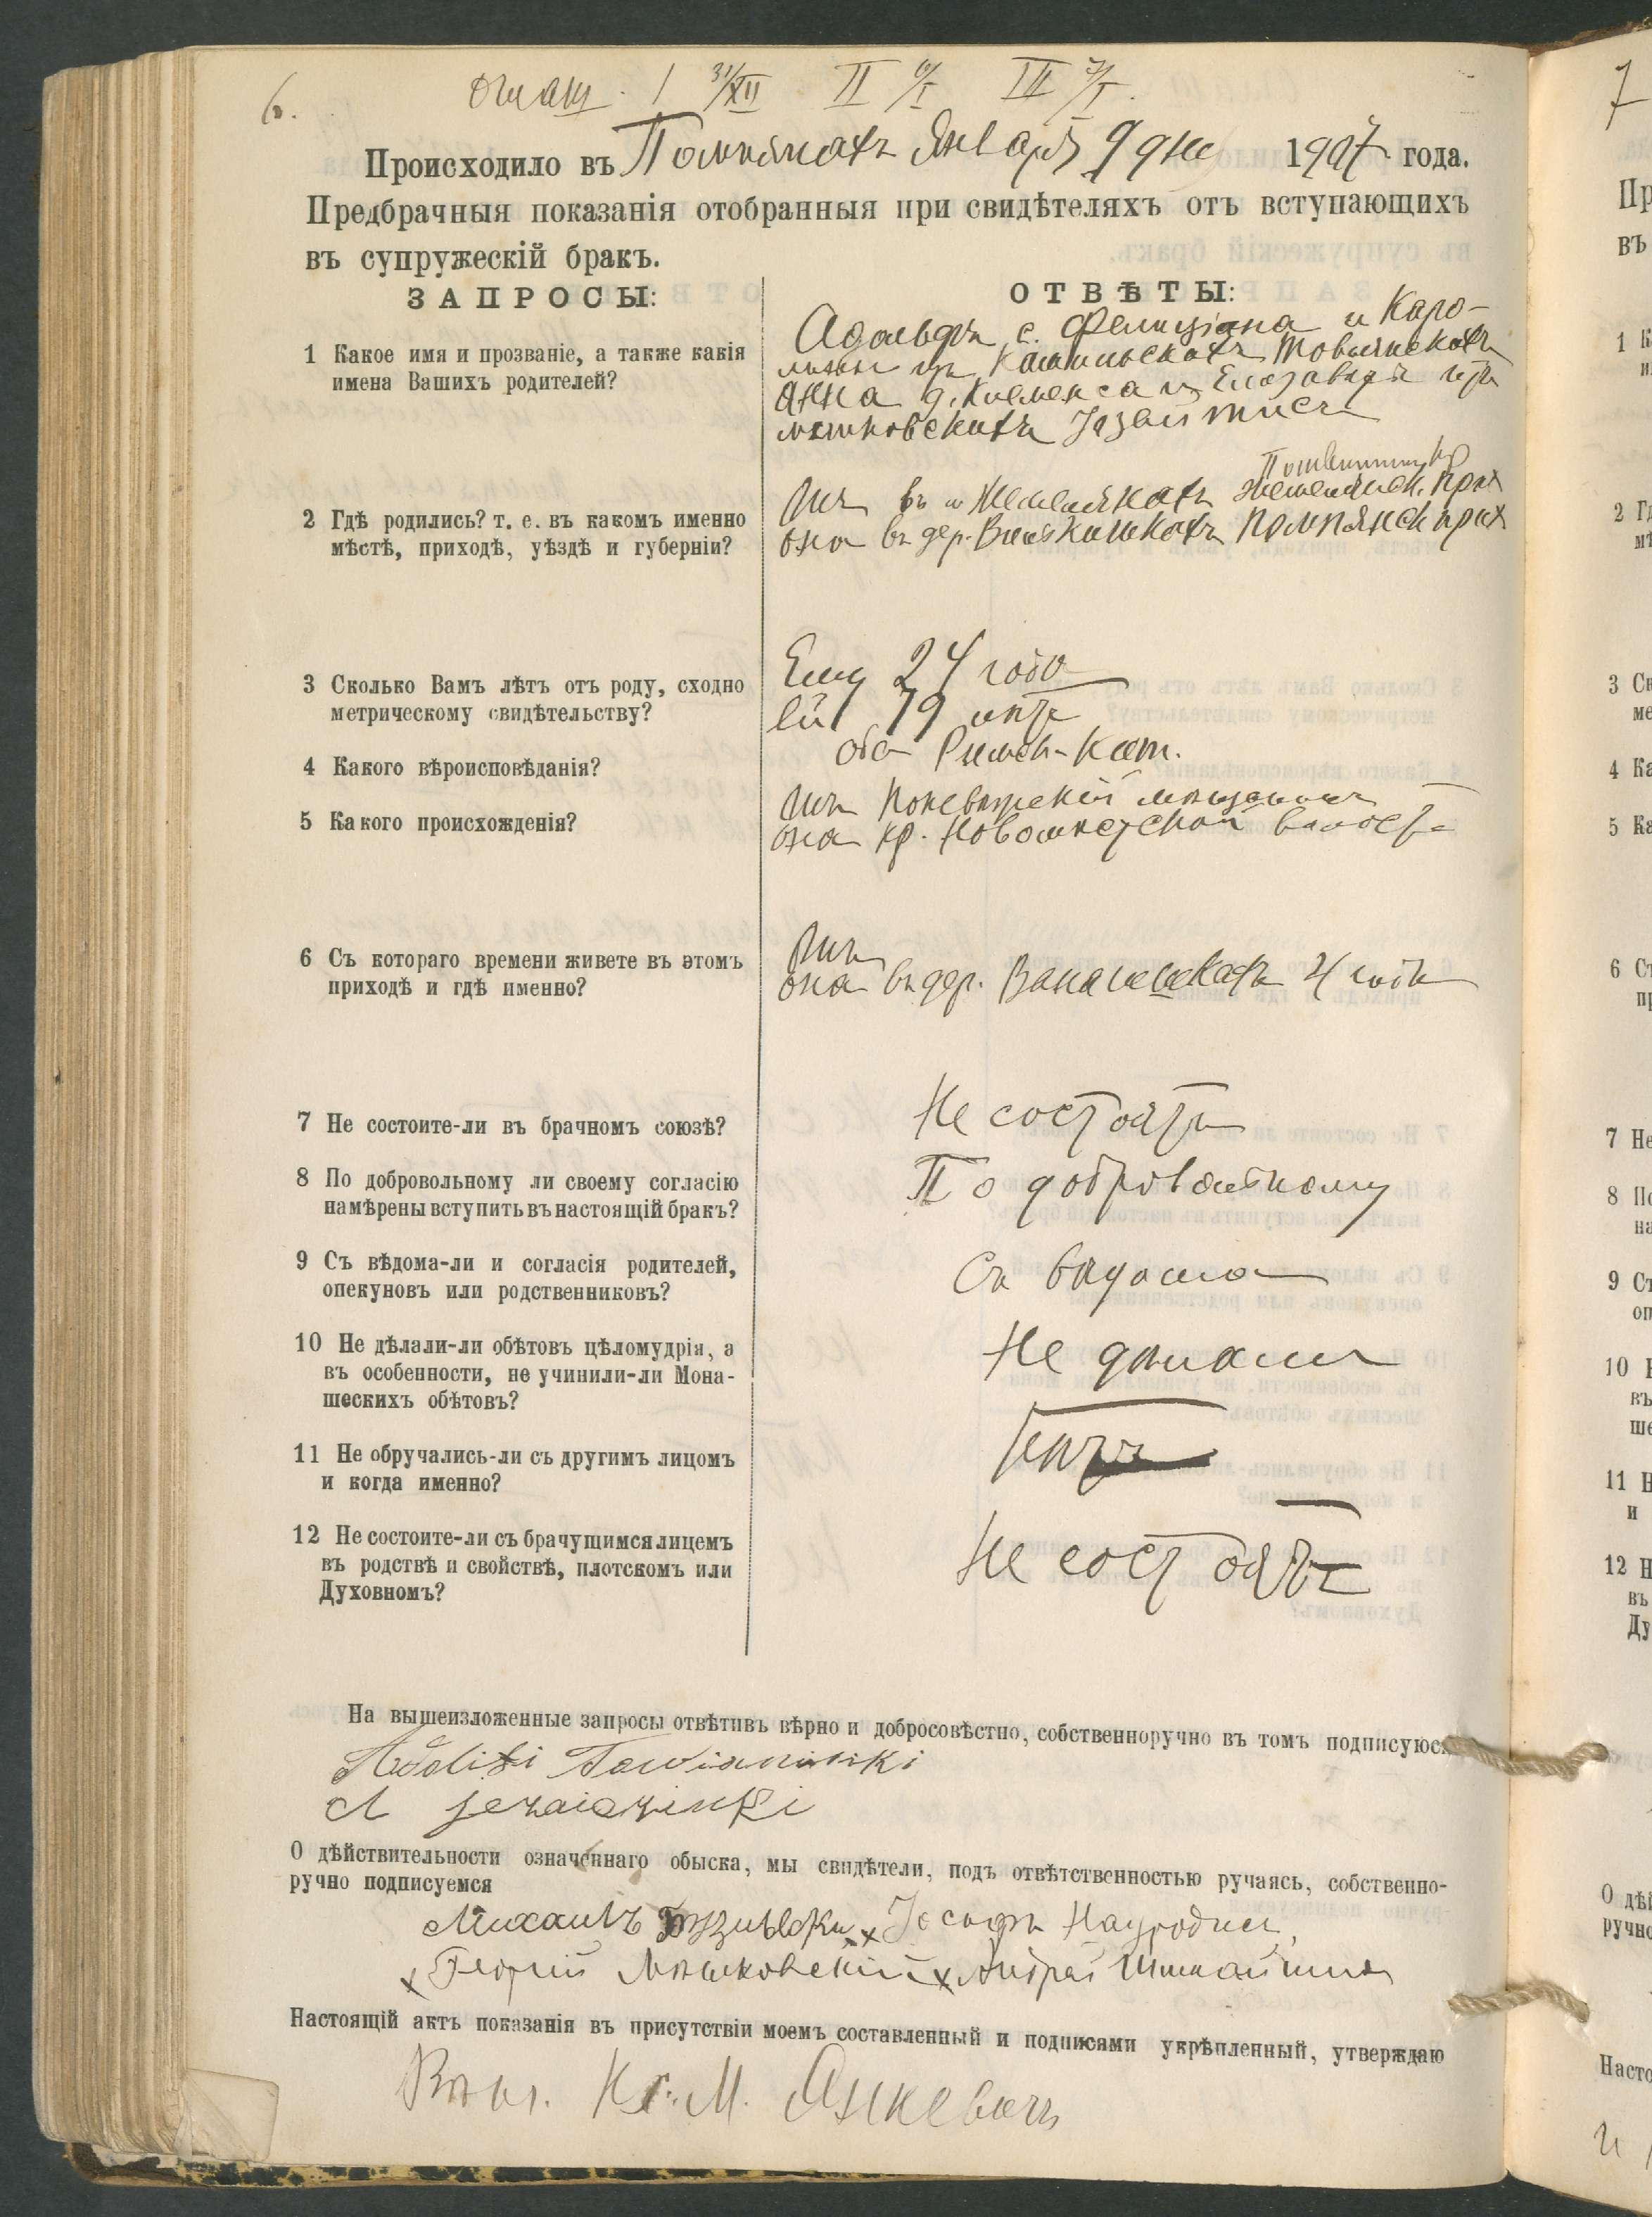 6.
оглаш. I 31/XII II 6/I III 7/I.
Происходило въ Помпянахъ Января 9 дня 1907 года.
Предбрачныя показанія отобранныя при свидѣтеляхъ отъ вступающихъ
въ супружескій бракъ.
ЗАПРОСЫ:
ОТВѢТЫ:
1 Какое имя и прозваніе, а также какія
имена Вашихъ родителей?
Адольфъ с. Фелиціана и Каро-
лины изъ Товянскихъ
Анна д. Клеменса и Елизаветы изъ
2 Гдѣ родились? т. е. въ какомъ именно
мѣстѣ, приходѣ, уѣздѣ и губерніи?
Онъ въ прих
она въ дер. Помпянск прих
3 Сколько Вамъ лѣтъ отъ роду, сходно
метрическому свидѣтельству?
Ему 24 года
ей 19 лѣтъ
4 Какого вѣроисповѣданія?
оба Римск-Кат.
5 Какого происхожденія?
Онъ Поневѣжскій мѣщанинъ
она кр. Новомѣстской волости
6 Съ котораго времени живете въ этомъ
приходѣ и гдѣ именно?
Онъ
она въ дер. 4 года
7 Не состоите-ли въ брачномъ союзѣ?
Не состоятъ
8 По добровольному ли своему согласію
намѣрены вступить въ настоящій бракъ?
По добровольному
9 Съ вѣдома-ли и согласія родителей,
опекуновъ или родственниковъ?
Съ вѣдома
10 Не дѣлали-ли обѣтовъ цѣломудрія, а
въ особенности, не учинили-ли Мона-
шескихъ обѣтовъ?
Не дѣлали
11 Не обручались-ли съ другимъ лицомъ
и когда именно?
Нѣтъ
12 Не состоите-ли съ брачущимся лицемъ
въ родствѣ и свойствѣ, плотскомъ или
Духовномъ?
Не состоятъ
На вышеизложенные запросы отвѣтивъ вѣрно и добросовѣстно, собственноручно въ томъ подписуюсь
Adolfi Towianski
A
О дѣйствительности означеннаго обыска, мы свидѣтели, подъ отвѣтственностью ручаясь, собственно-
ручно подписуемся
Михаилъ × Іосифъ
× Георгій Мѣшковскій × Андрей
Настоящій актъ показанія въ присутствіи моемъ составленный и подписами укрѣпленный, утверждаю
Викар. Кс. М. Янкевичъ